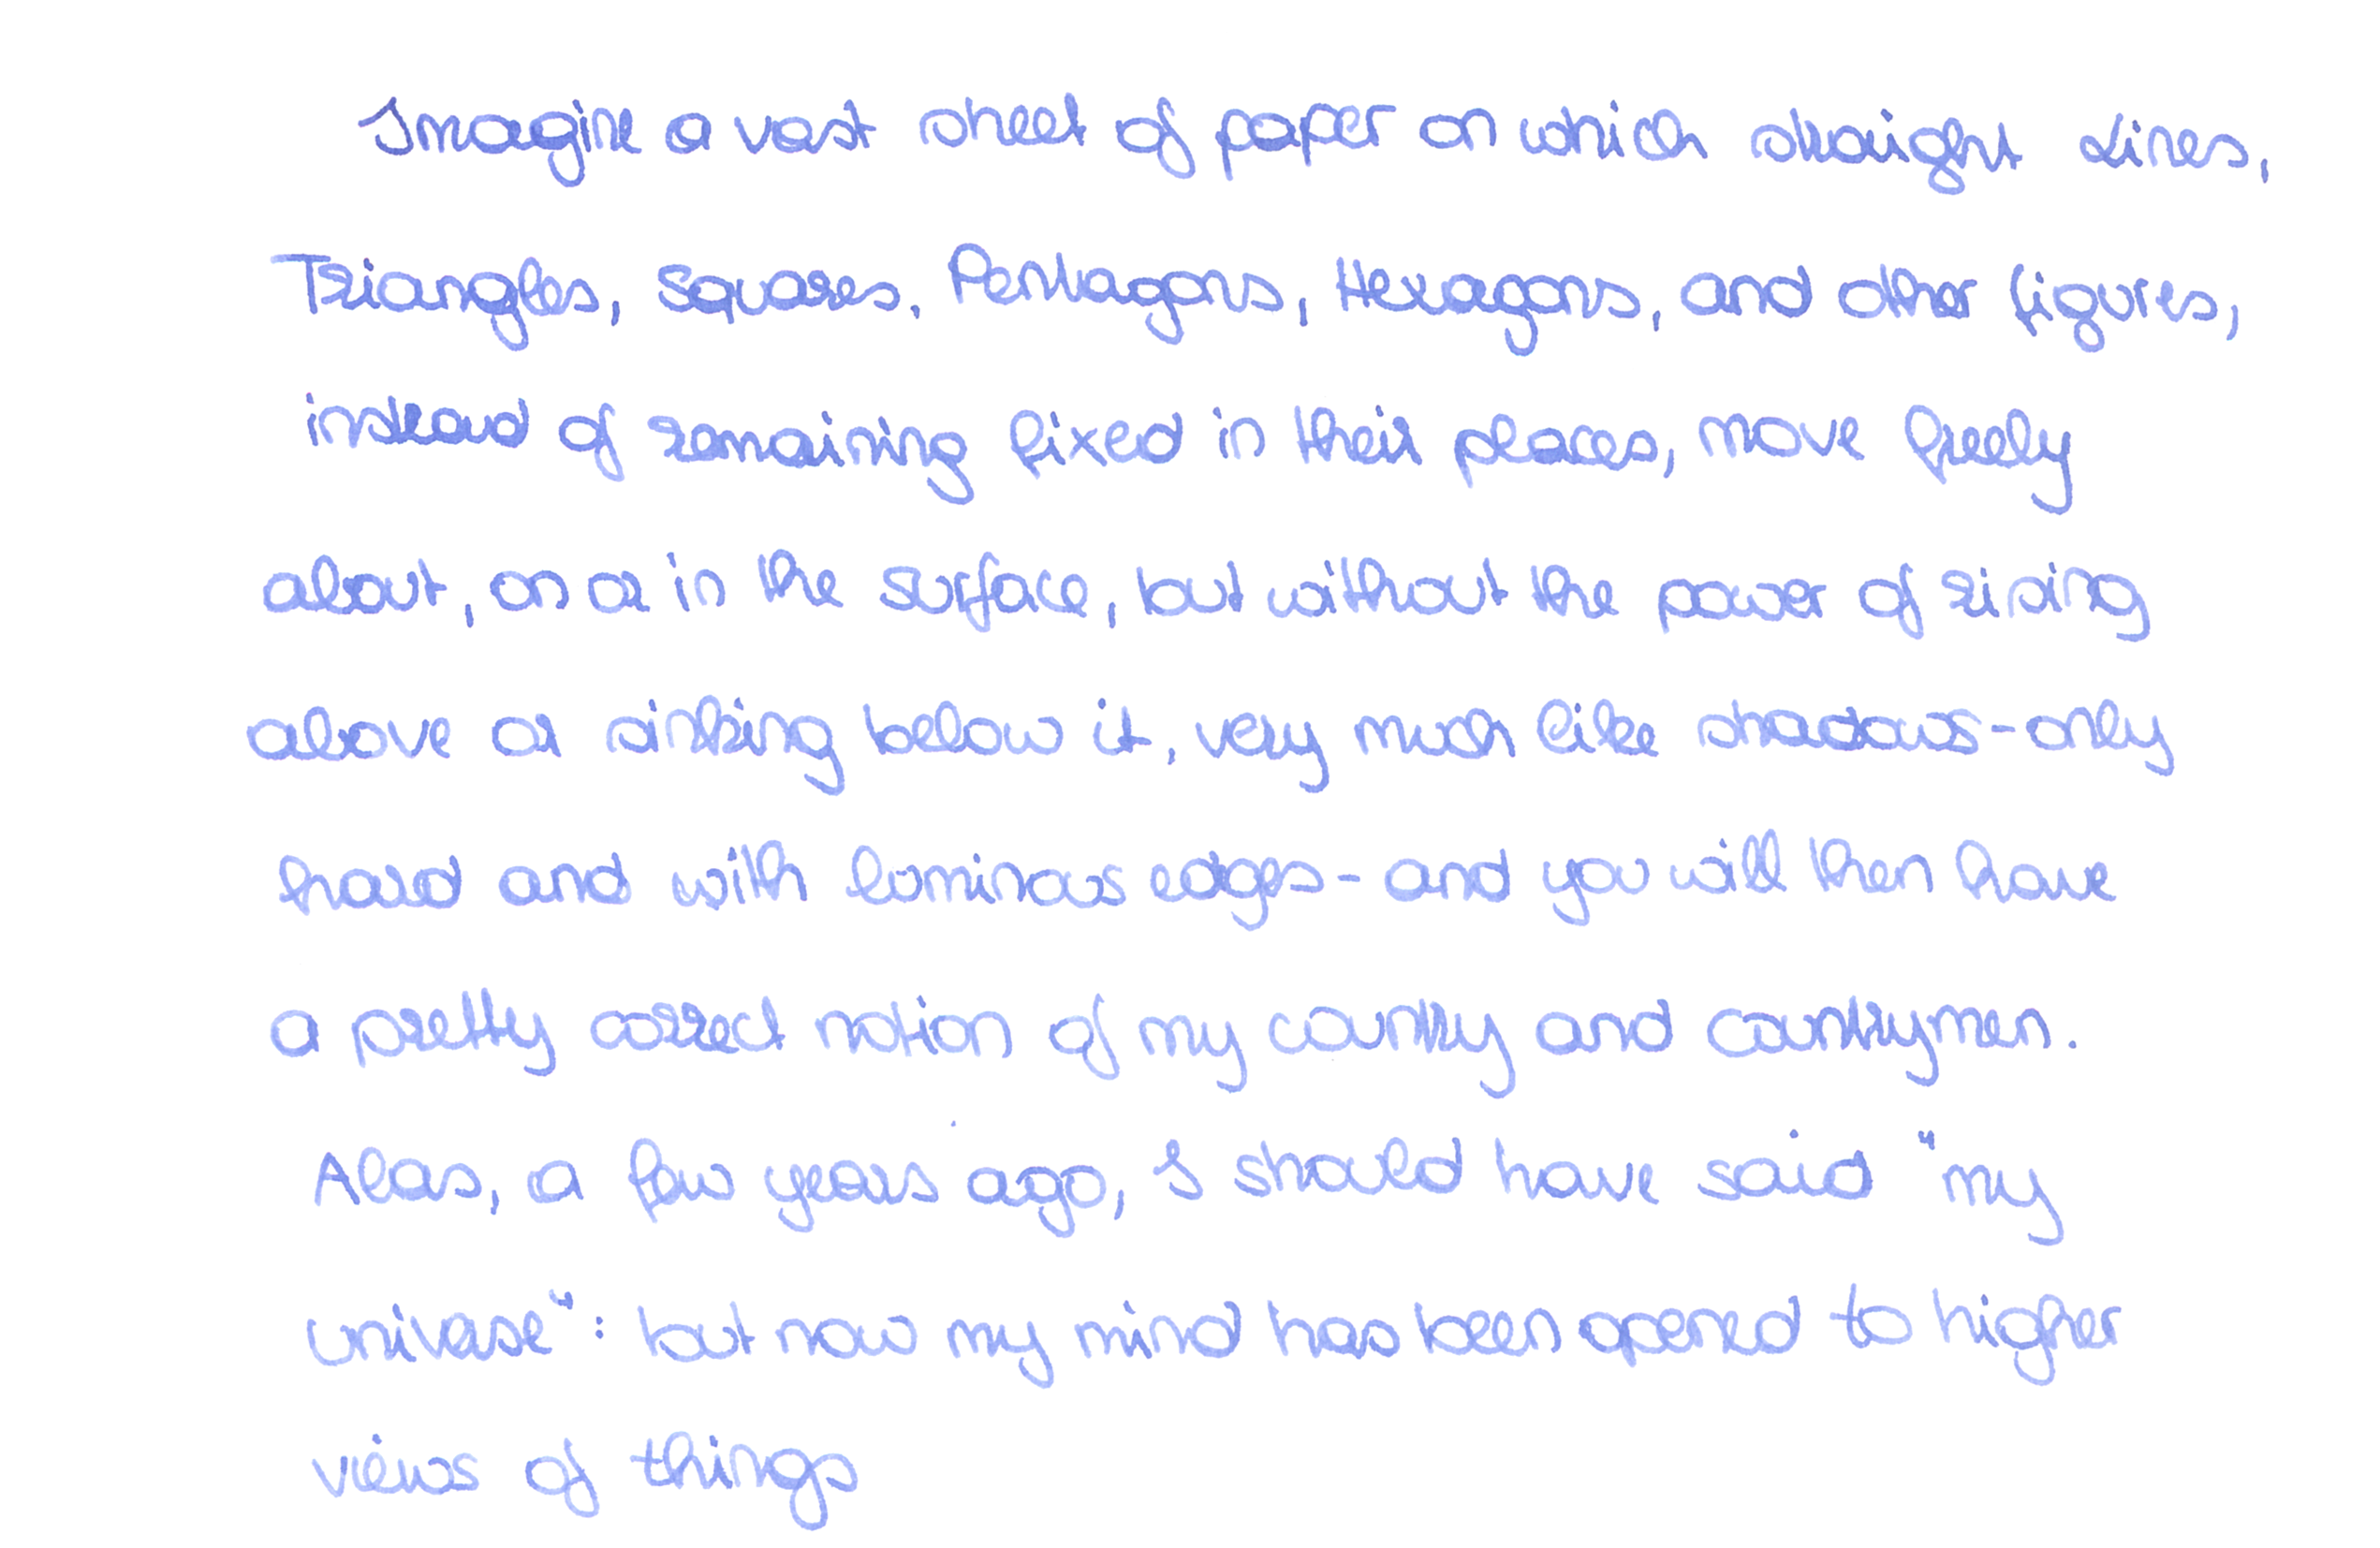 Imagine a vast sheet of paper on which straight Lines,
Triangles, Squares. Pentagons, Hexagons, and other figures,
instead of remaining fixed in their places, move freely
about, on or in the surface, but without the power of rising
above or sinking below it, very much like shadows-only
hard and with luminous edges-and you will then have
a pretty correct notion of my country and countrymen.
Alas, a few years ago, I should have said "my
universe": but now my mind has been opened to higher
views of things